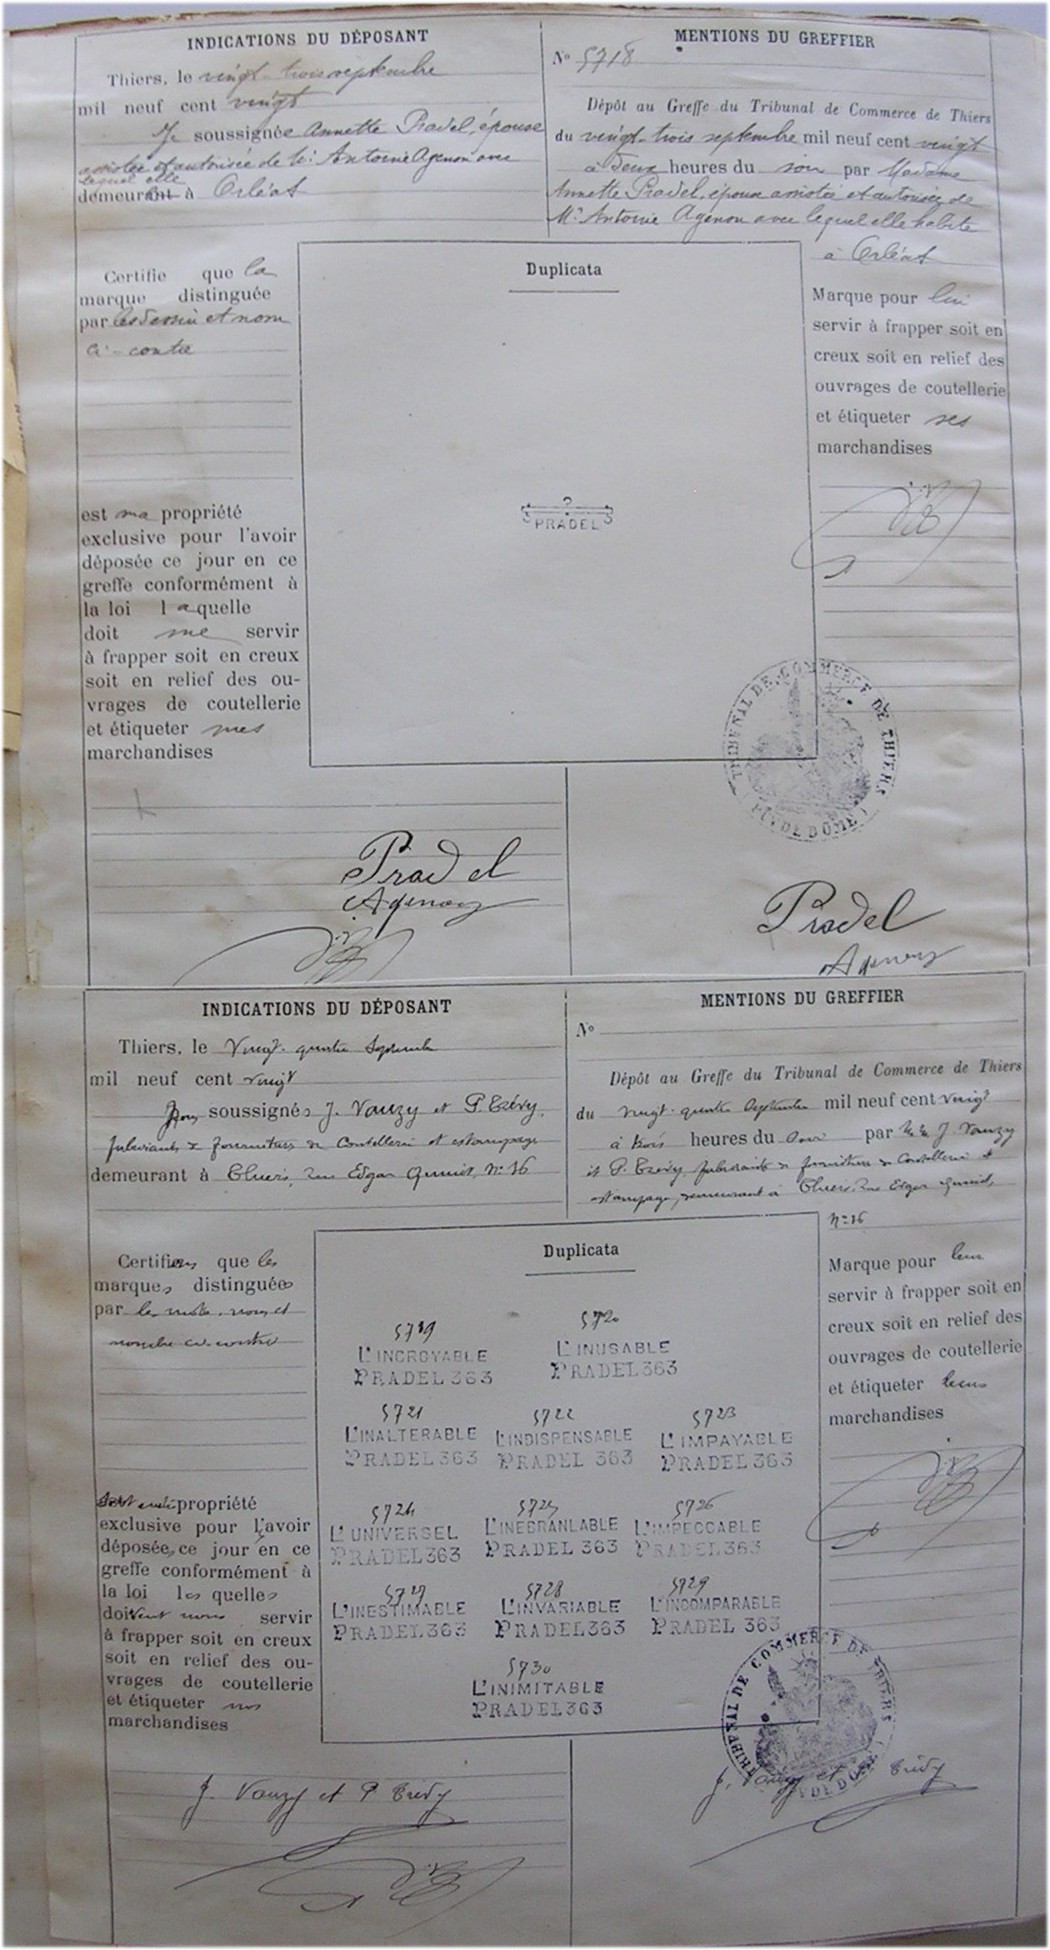 INDICATIONS DU DÉPOSANT
Thiers, le vingt-trois septembre
mil neuf cent vingt
Je soussignée Annette Pradel, épouse
assistée et autorisée de Mr Antoine Agenon avec
lequel elle
demeurant à Orléat
MENTIONS DU GREFFIER
No 5718
Dépôt au Greffe du Tribunal de Commerce de Thiers
du vingt-trois septembre mil neuf cent vingt
à deux heures du soir par Madame
Annette Pradel, épouse assistée et autorisée de
Mr Antoine Agenon avec lequel elle habite
à Orléat
Certifie que la
marque distinguée
par les dessin et nom
ci-contre
est ma propriété
exclusive pour l'avoir
déposée ce jour en ce
greffe conformément à
la loi laquelle
doit me servir
à frapper soit en creux
soit en relief des ou-
vrages de coutellerie
et étiqueter mes
marchandises
Duplicata
?
PRADEL
Marque pour lui
servir à frapper soit en
creux soit en relief des
ouvrages de coutellerie
et étiqueter ses
marchandises
TRIBUNAL DE COMMERCE DE THIERS
(PUY DE DÔME)
Pradel
Agenon
Pradel
Agenon
INDICATIONS DU DÉPOSANT
Thiers, le Vingt-quatre Septembre
mil neuf cent vingt
Nous soussignés J. Vauzy et P. Trévy,
fabricants de fournitures de Coutellerie et estampage
demeurant à Thiers, Rue Edgar Quinet, No 16
MENTIONS DU GREFFIER
No
Dépôt au Greffe du Tribunal de Commerce de Thiers
du vingt-quatre Septembre mil neuf cent vingt
à trois heures du soir par J. Vauzy
et P. Trévy, fabricants de fournitures de Coutellerie et
estampage, demeurant à Thiers, Rue Edgar Quinet,
No 16
Certifions que les
marques distinguées
par les mots, nom et
nombre ci-contre
sont notre propriété
exclusive pour l'avoir
déposées ce jour en ce
greffe conformément à
la loi lesquelles
doivent nous servir
à frapper soit en creux
soit en relief des ou-
vrages de coutellerie
et étiqueter nos
marchandises
Duplicata
5719 5720
L'INCROYABLE L'INUSABLE
PRADEL 363 PRADEL 363
5721 5722 5723
L'INALTERABLE L'INDISPENSABLE L'IMPAYABLE
PRADEL 363 PRADEL 363 PRADEL 363
5724 5725 5726
L'UNIVERSEL L'INEBRANLABLE L'IMPECCABLE
PRADEL 363 PRADEL 363 PRADEL 363
5727 5728 5729
L'INESTIMABLE L'INVARIABLE L'INCOMPARABLE
PRADEL 363 PRADEL 363 PRADEL 363
5730
L'INIMITABLE
PRADEL 363
Marque pour leur
servir à frapper soit en
creux soit en relief des
ouvrages de coutellerie
et étiqueter leurs
marchandises
TRIBUNAL DE COMMERCE DE THIERS
(PUY DE DOME)
J. Vauzy et P Trévy
J. Vauzy et Trévy